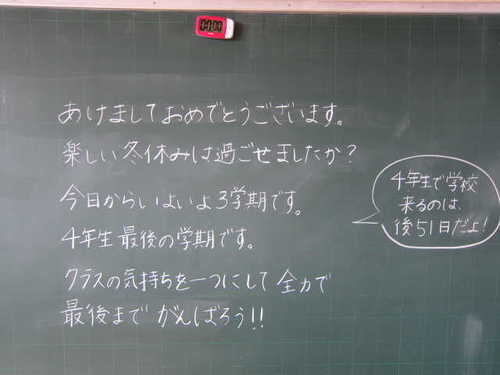 あけましておめでとうございます。
楽しい冬休みは過ごせましたか?
今日からいよいよ3学期です。
4年生最後の学期です。
クラスの気持ちを一つにして 全力で
最後まで がんばろう!!
4年生で学校
来るのは、
後51日だよ!